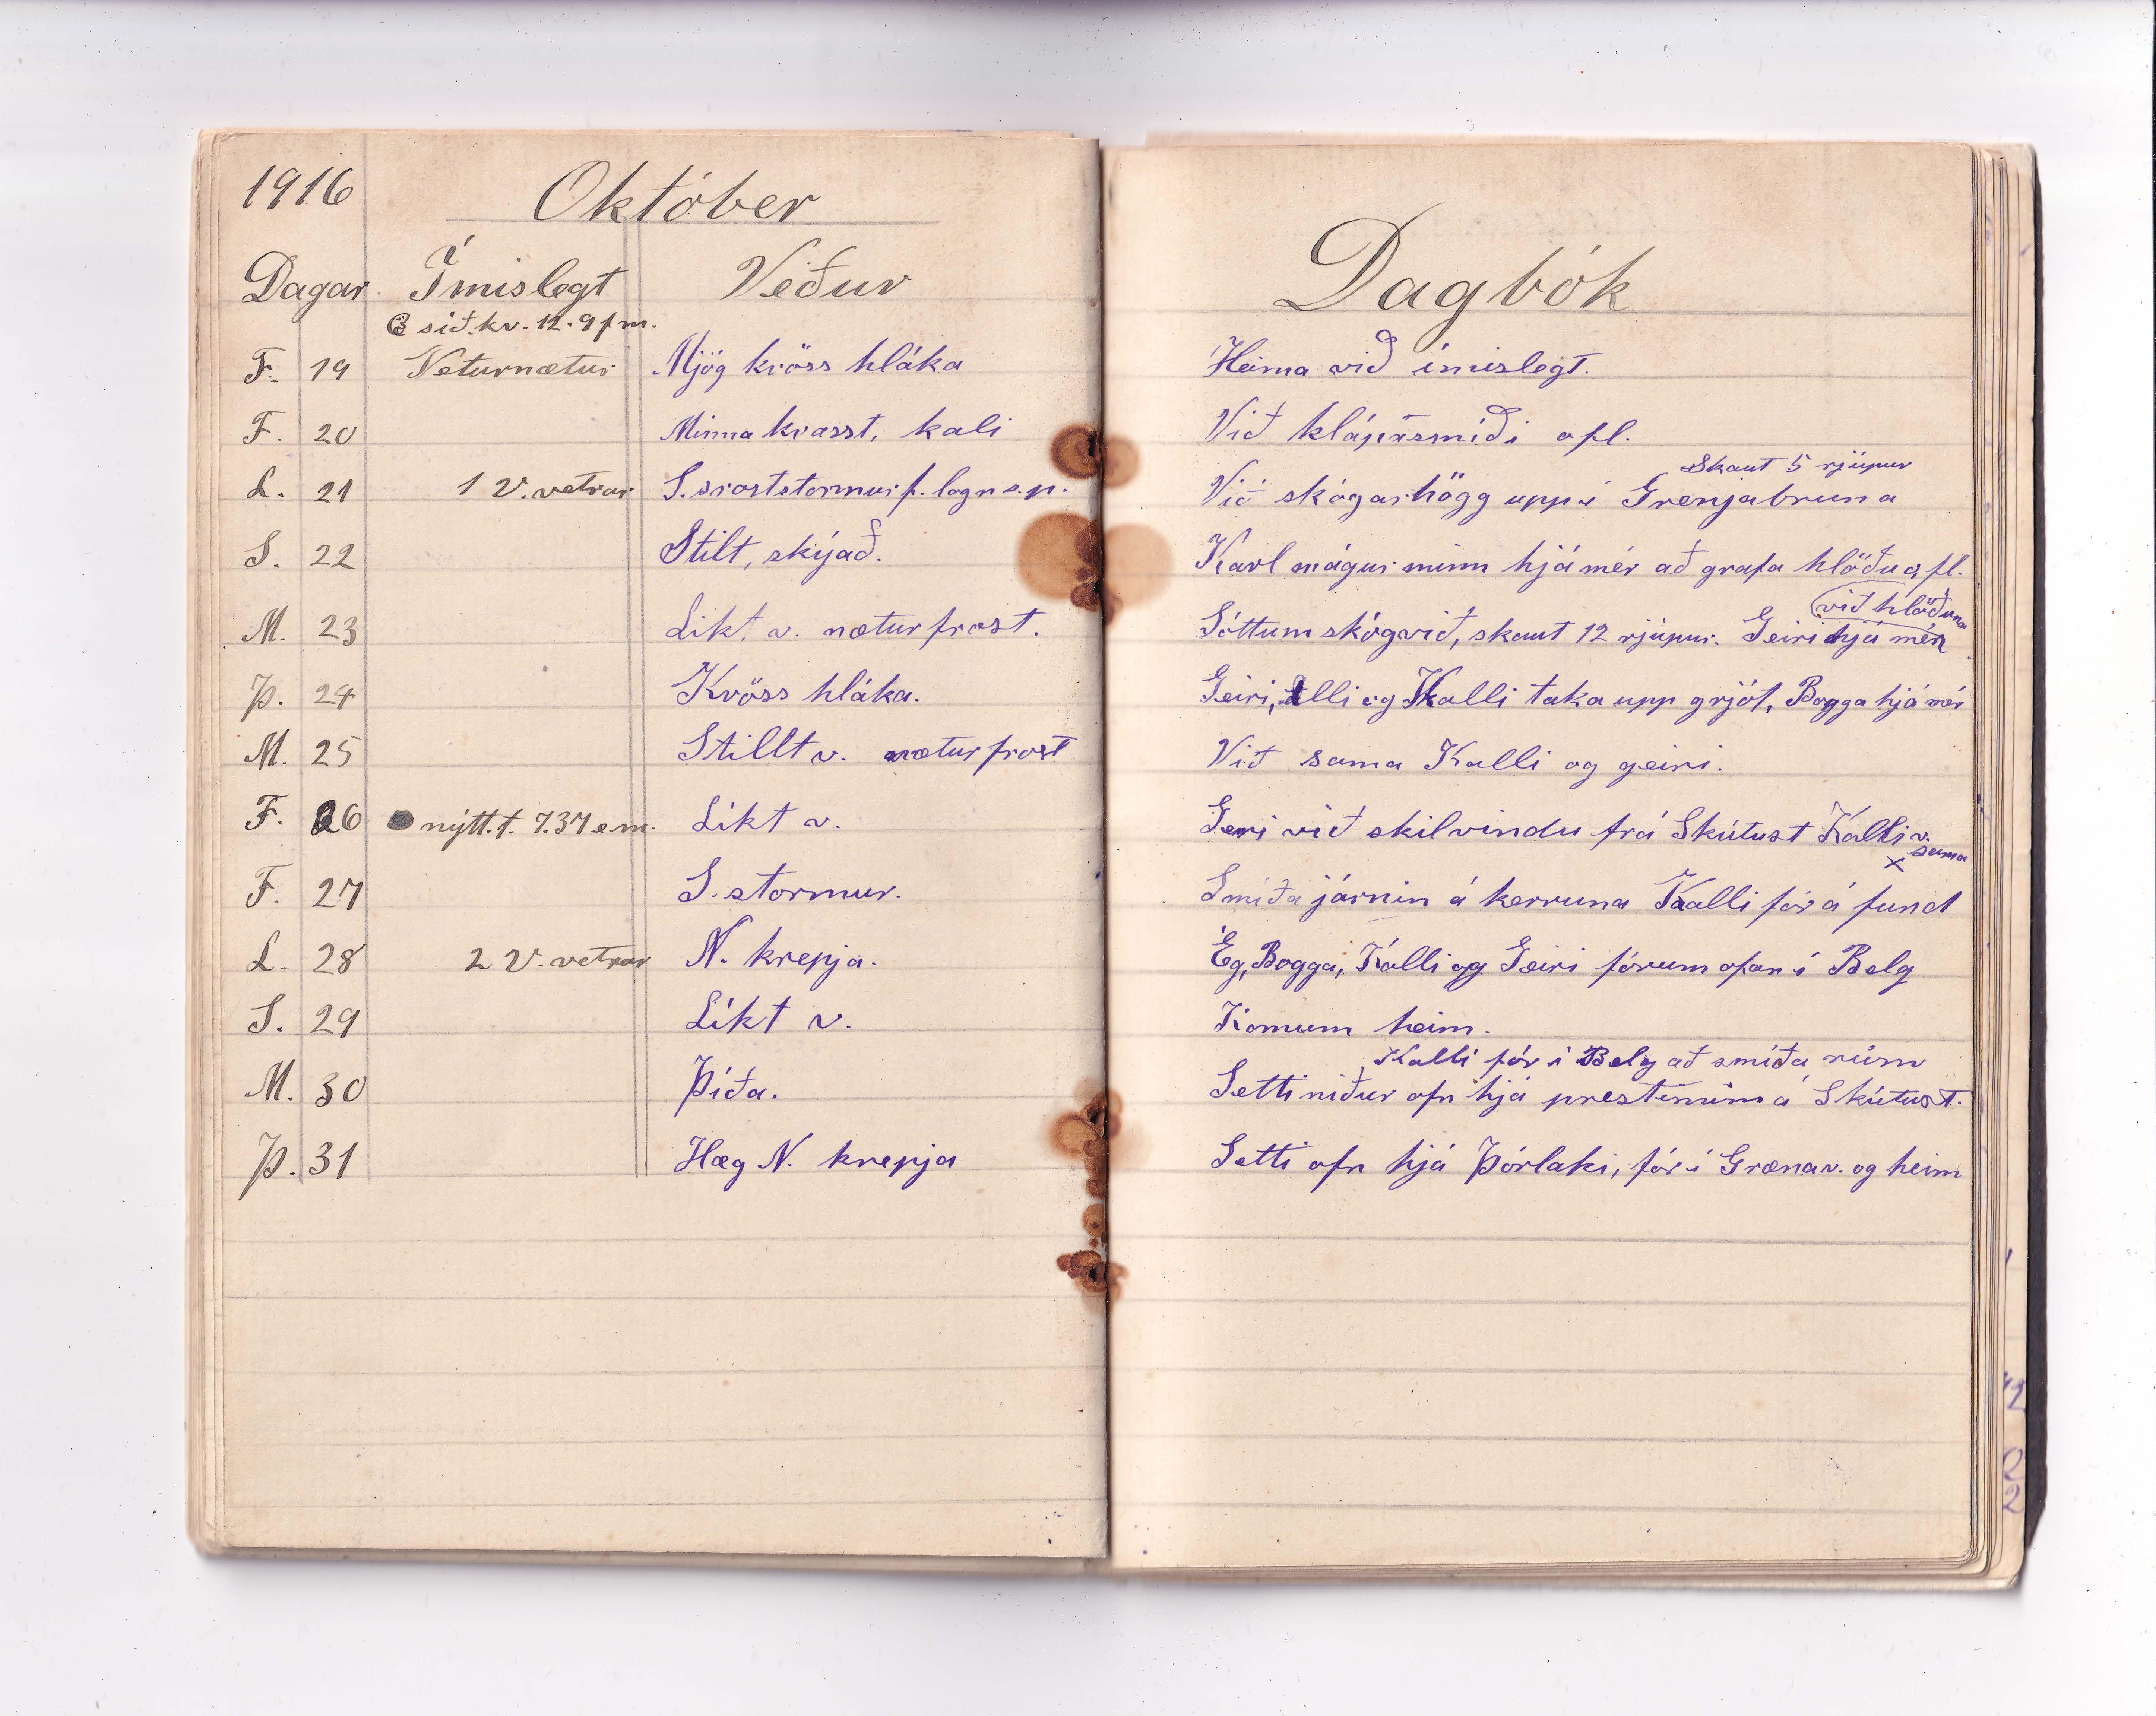 1916 Október
Dagar Ímislegt Veður
síð. kv. 12.9 f m.
F. 19 Veturnætur Mjög kröss hláka
F. 20 Minna krasst, kali
L. 21 1 V. vetrar S. froststormur f. logn e.p.
S. 22 Stilt, skýjað.
M. 23 Líkt. v. næturfrost.
Þ. 24 Kröss hláka.
M. 25 Stillt v. næturfrost
F. 26 nýtt. t. 7.37 e m. Líkt v.
F. 27 S. stormur.
L. 28 2 V. vetrar N. krepja.
S. 29 Líkt v.
M. 30 Þíða.
Þ. 31 Hæg N. krepja
Dagbók
Heima við ímislegt.
Við klápasmíði ofl.
Skaut 5 rjúpur
Við skógarhögg upp í Grenjabruna
Karl mágur minn hjá mér að grafa hlöðu o, fl.
við hlöðuna
Sóttum skógvið, skaut 12 rjúpur. Geiri hjá mér
Geiri, Alli og Kalli taka upp grjót, Bogga hjá mér
Við sama Kalli og geiri.
Geiri við skilvindu frá Skútust Kalli v.
sama
Smíða járnin á kerruna Kalli fór á fund
Ég, Bogga, Kalli og Geiri fórum ofan í Belg
Komum heim.
Kalli fór í Belg að smíða rúm
Setti niður ofn hjá prestinum á Skútust.
Setti ofn hjá Þórlaki, fór í Grænav. og heim